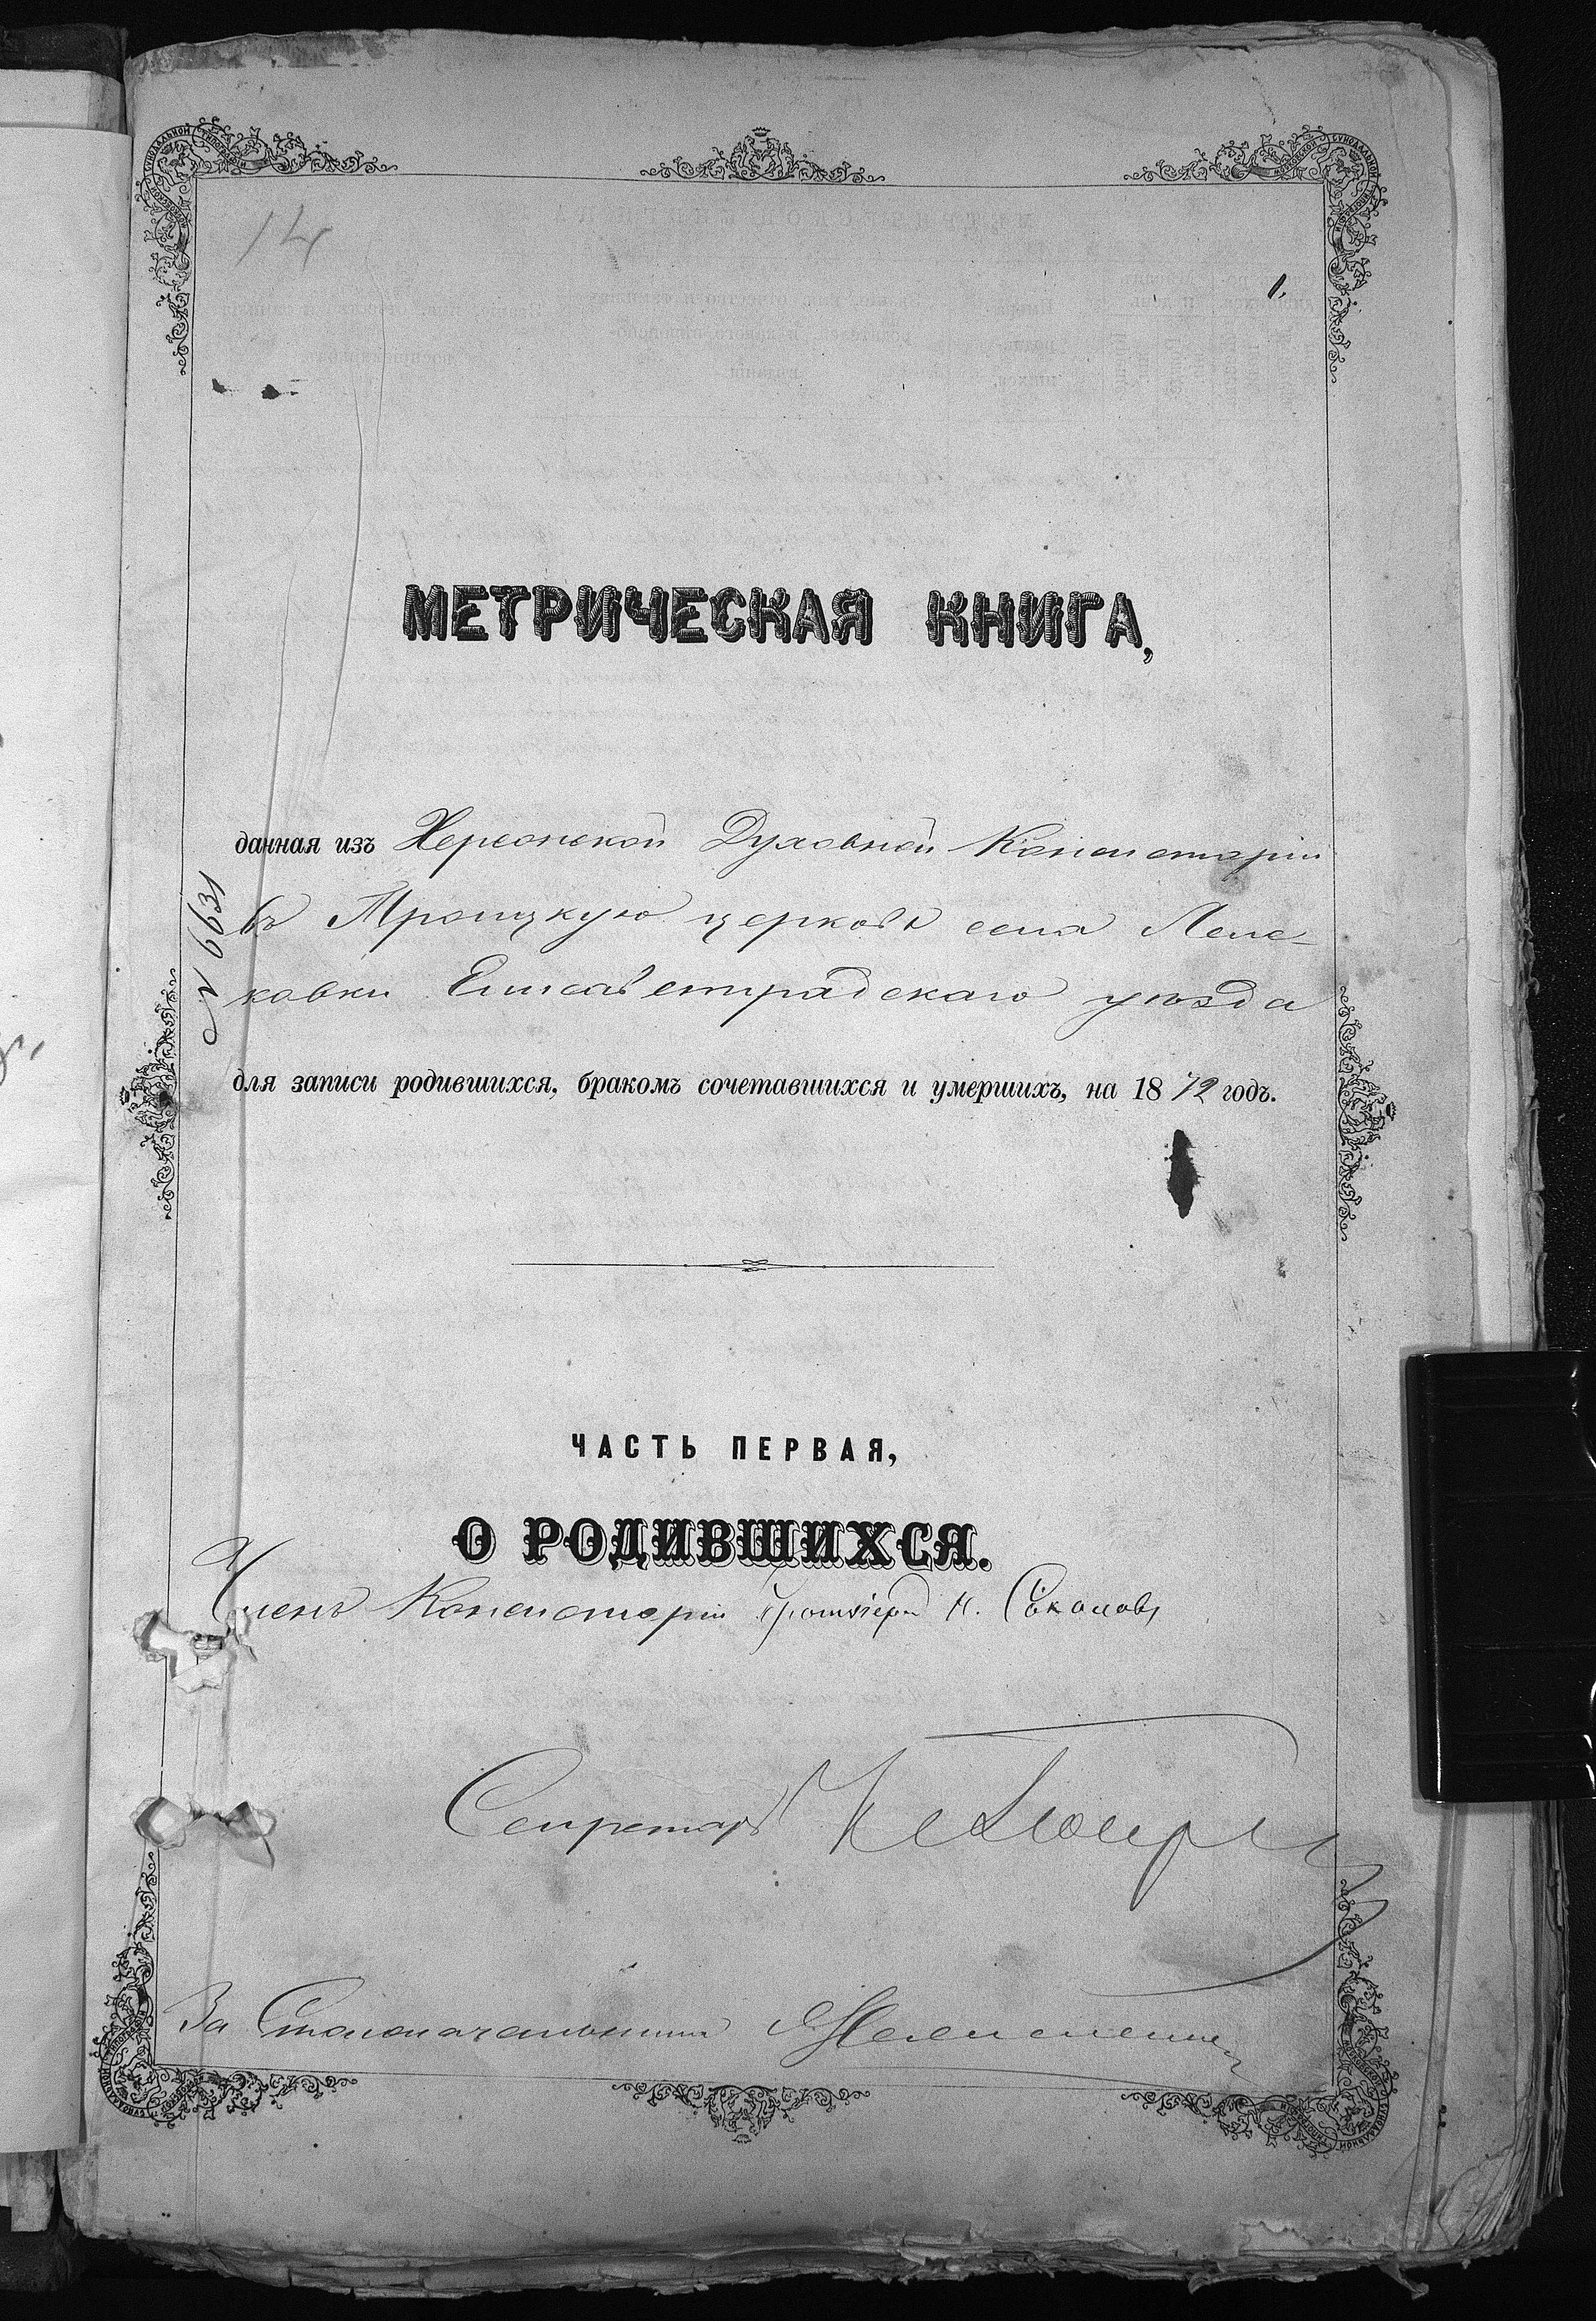 14
1.
МЕТРИЧЕСКАЯ КНИГА,
данная изъ Херсонской Духовной Консисторіи
въ Троицкую церковь села Леле-
ковки Елисаветградскаго уѣзда
№ 6631
для записи родившихся, бракомъ сочетавшихся и умершихъ, на 1872 годъ.
ЧАСТЬ ПЕРВАЯ,
О РОДИВШИХСЯ.
Членъ Консисторіи Протоіерей Н. Соколовъ
Секретарь
За Столоначальника